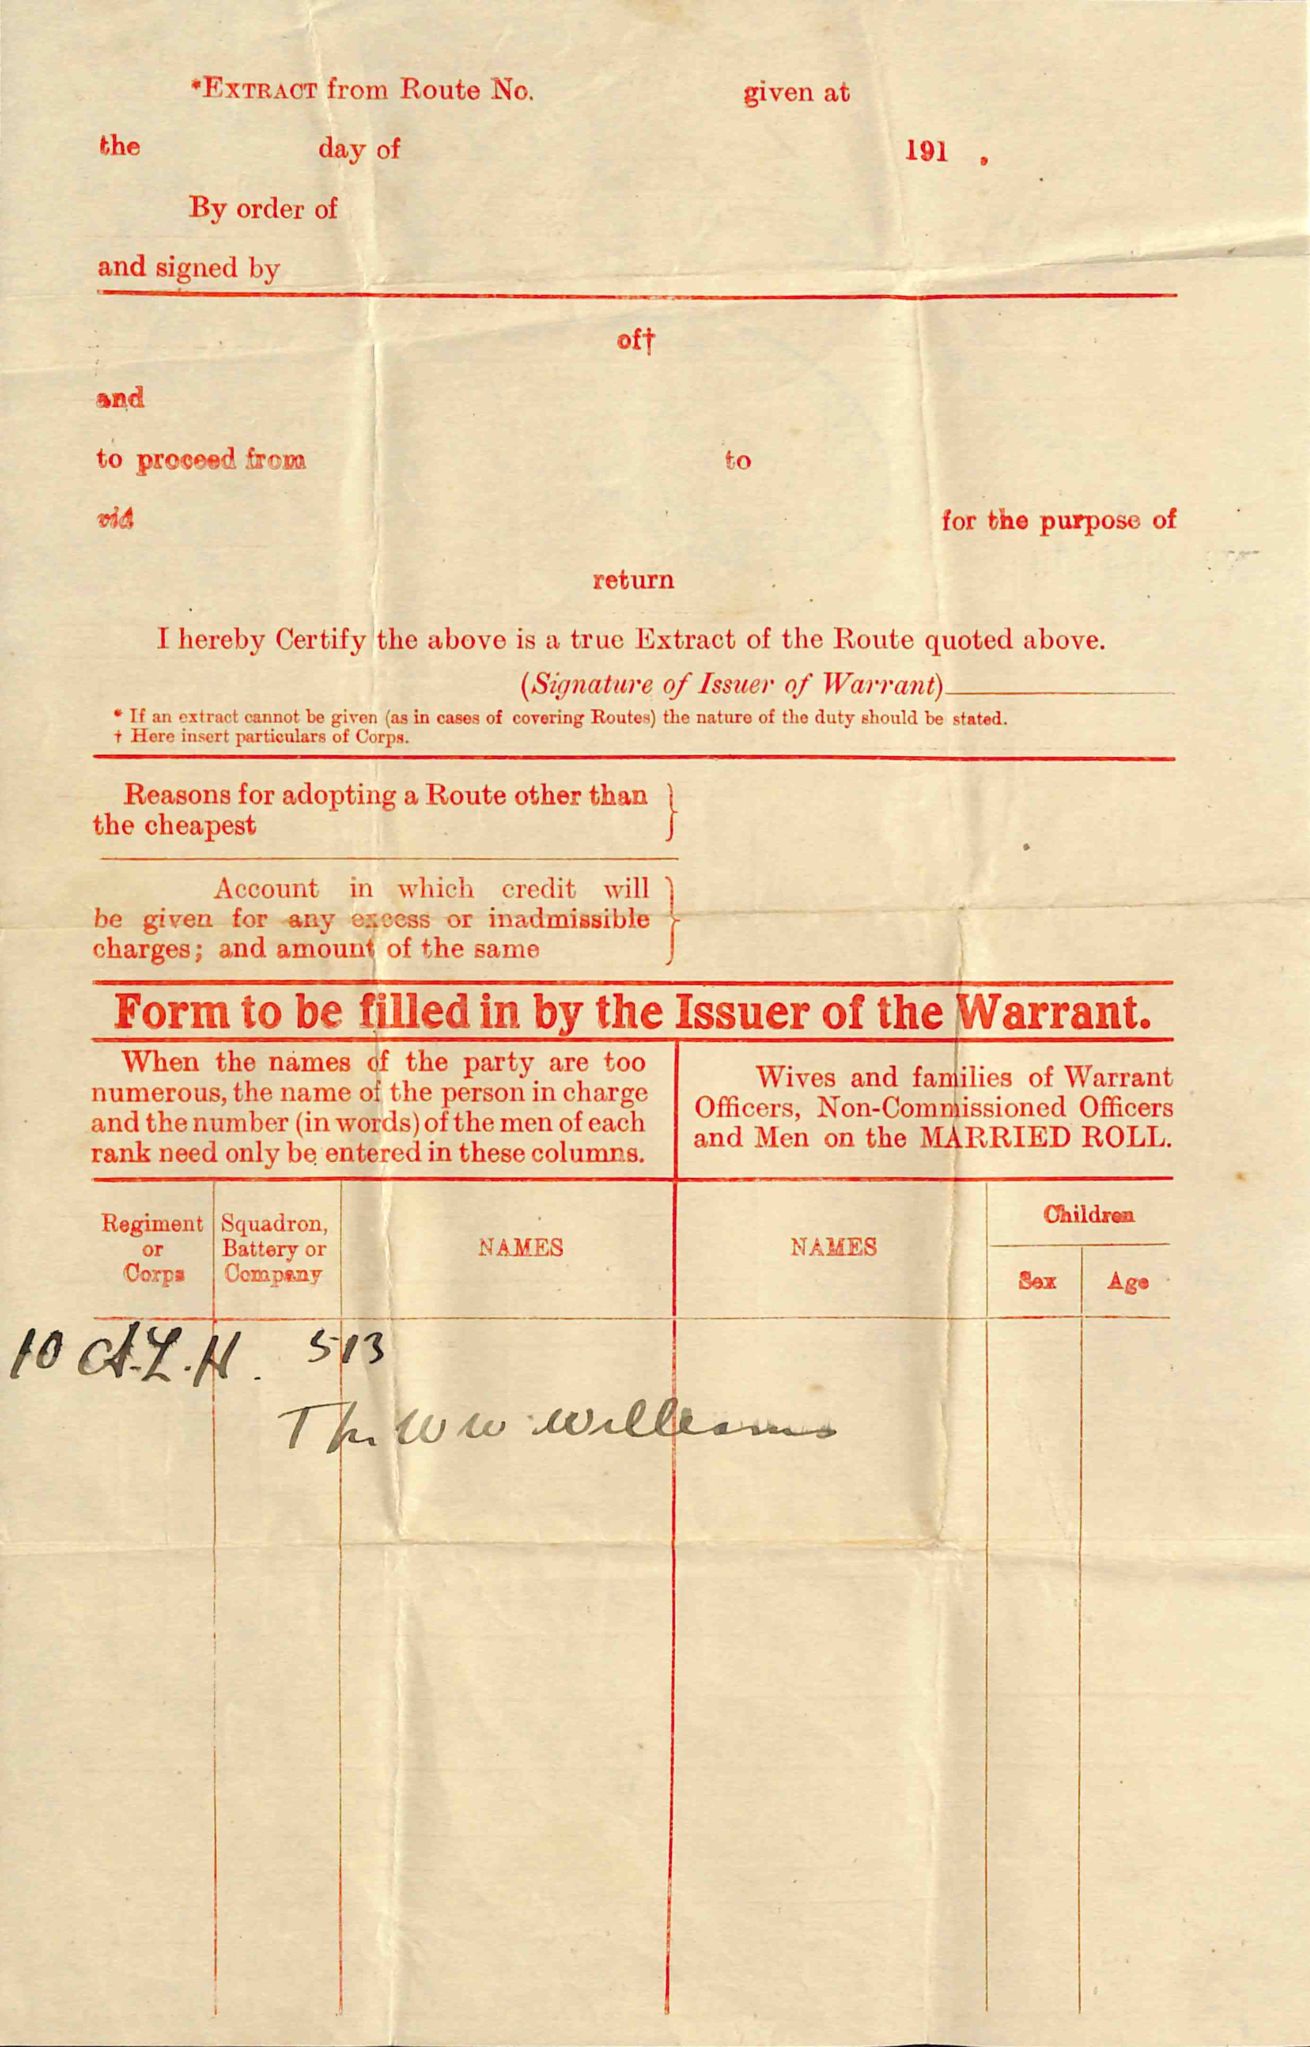 *EXTRACT from Route No. given at
the day of 191 .
By order of
and signed by
of†
and
to proceed from to
viâ for the purpose of
return
I hereby Certify the above is a true Extract of the Route quoted above.
(Signature of Issuer of Warrant)
* If an extract cannot be given (as in cases of covering Routes) the nature of the duty should be stated.
† Here insert particulars of Corps.
Reasons for adopting a Route other than
the cheapest
Account in which credit will
be given for any excess or inadmissible
charges; and amount of the same
Form to be filled in by the Issuer of the Warrant.
When the names of the party are too
numerous, the name of the person in charge
and the number (in words) of the men of each
rank need only be entered in these columns.
Wives and families of Warrant
Officers, Non-Commissioned Officers
and Men on the MARRIED ROLL.
Regiment
or
Corps
Squadron,
Battery or
Company
NAMES
NAMES
Children
Sex
Age
10 A.L.H. 513
Tpr. W W Williams